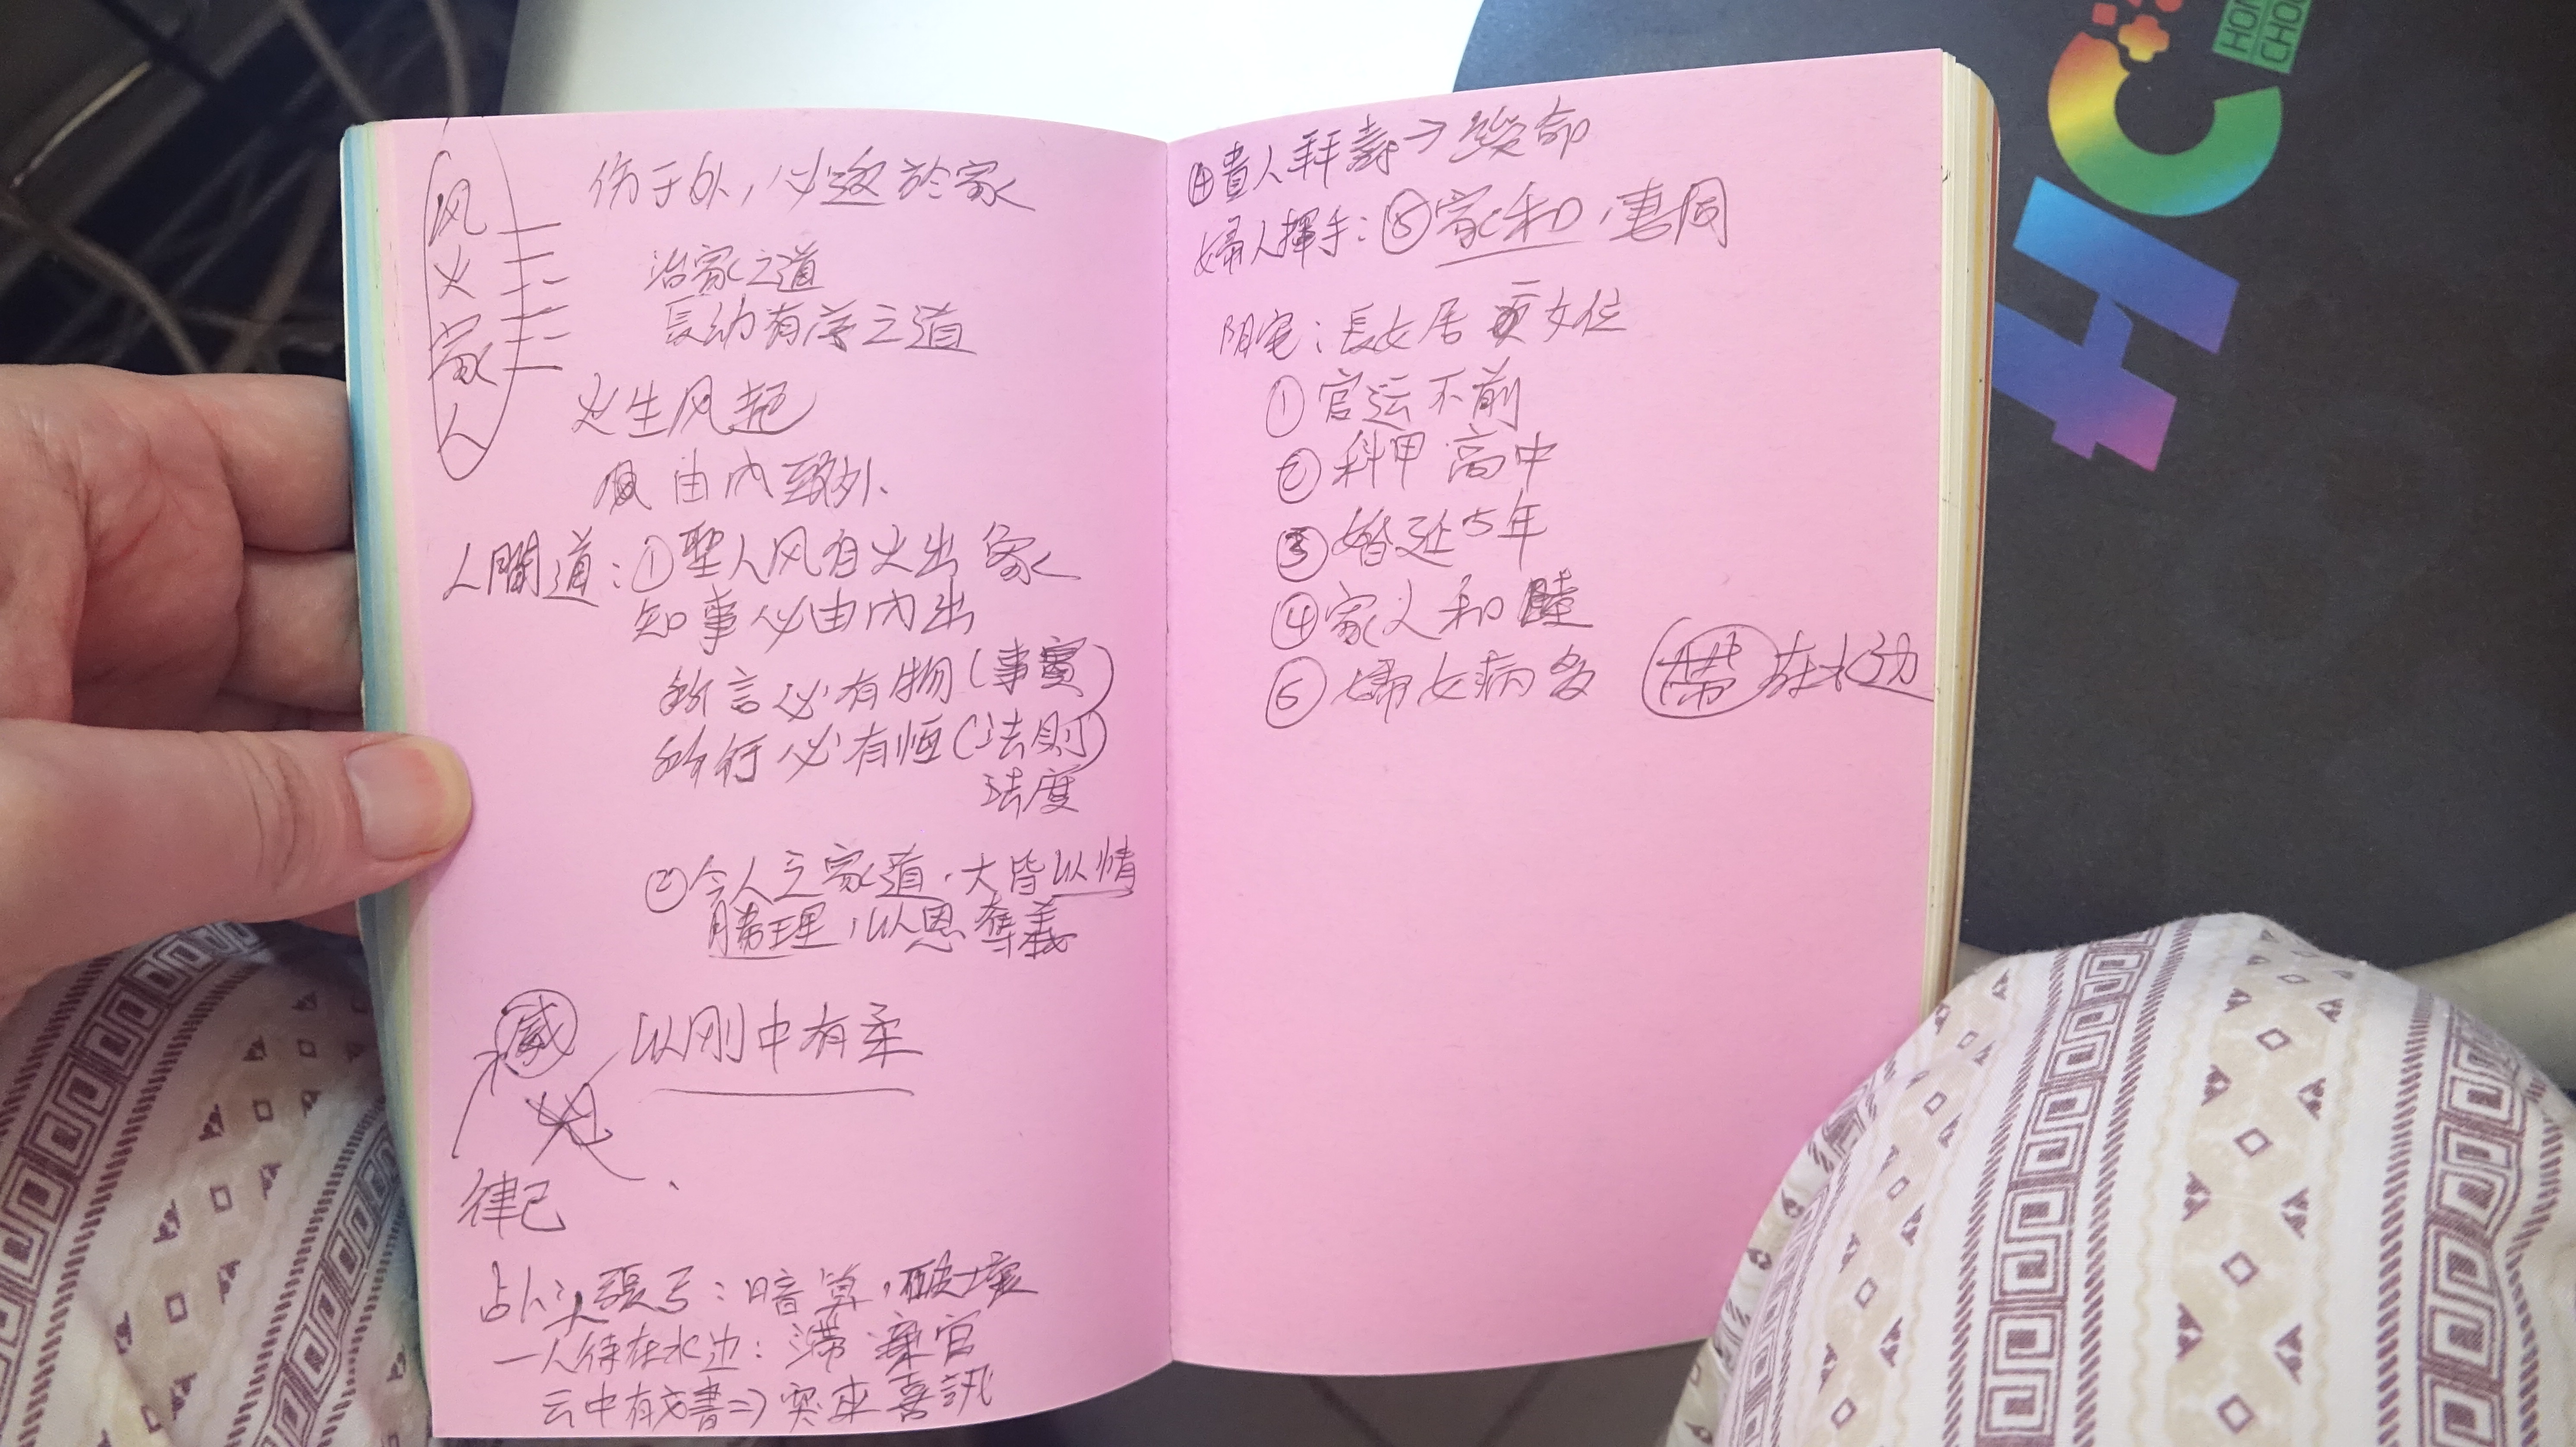 风火家人
伤于外，必返於家
治家之道
長幼有序之道
火生风起
风由内至外、
人間道：①聖人风自火出 家
知事必由内出
所言必有物（事實）
所行必有恒（法則）
法度
②今人之家道，大皆以情
勝理，以恩奪義
威 以刚中有柔
律己
占卜：一人張弓：暗算，破壞
一人待在水边：滞 棄官
云中有文書⇒突来喜訊
④貴人拜壽→
婦人揮手：⑤家和，事同
阴宅：長女居 女位
①官运不前
②科甲高中
③婚延5年
④家人和睦
⑥婦女病多 带在水边
HC